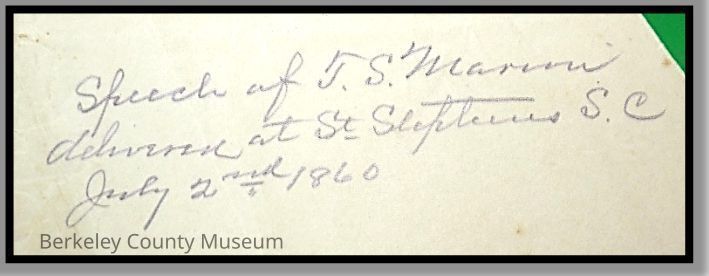 Speech of T. S. Marion
delivered at St Stephens S. C
July 2nd 1860
Berkeley County Museum